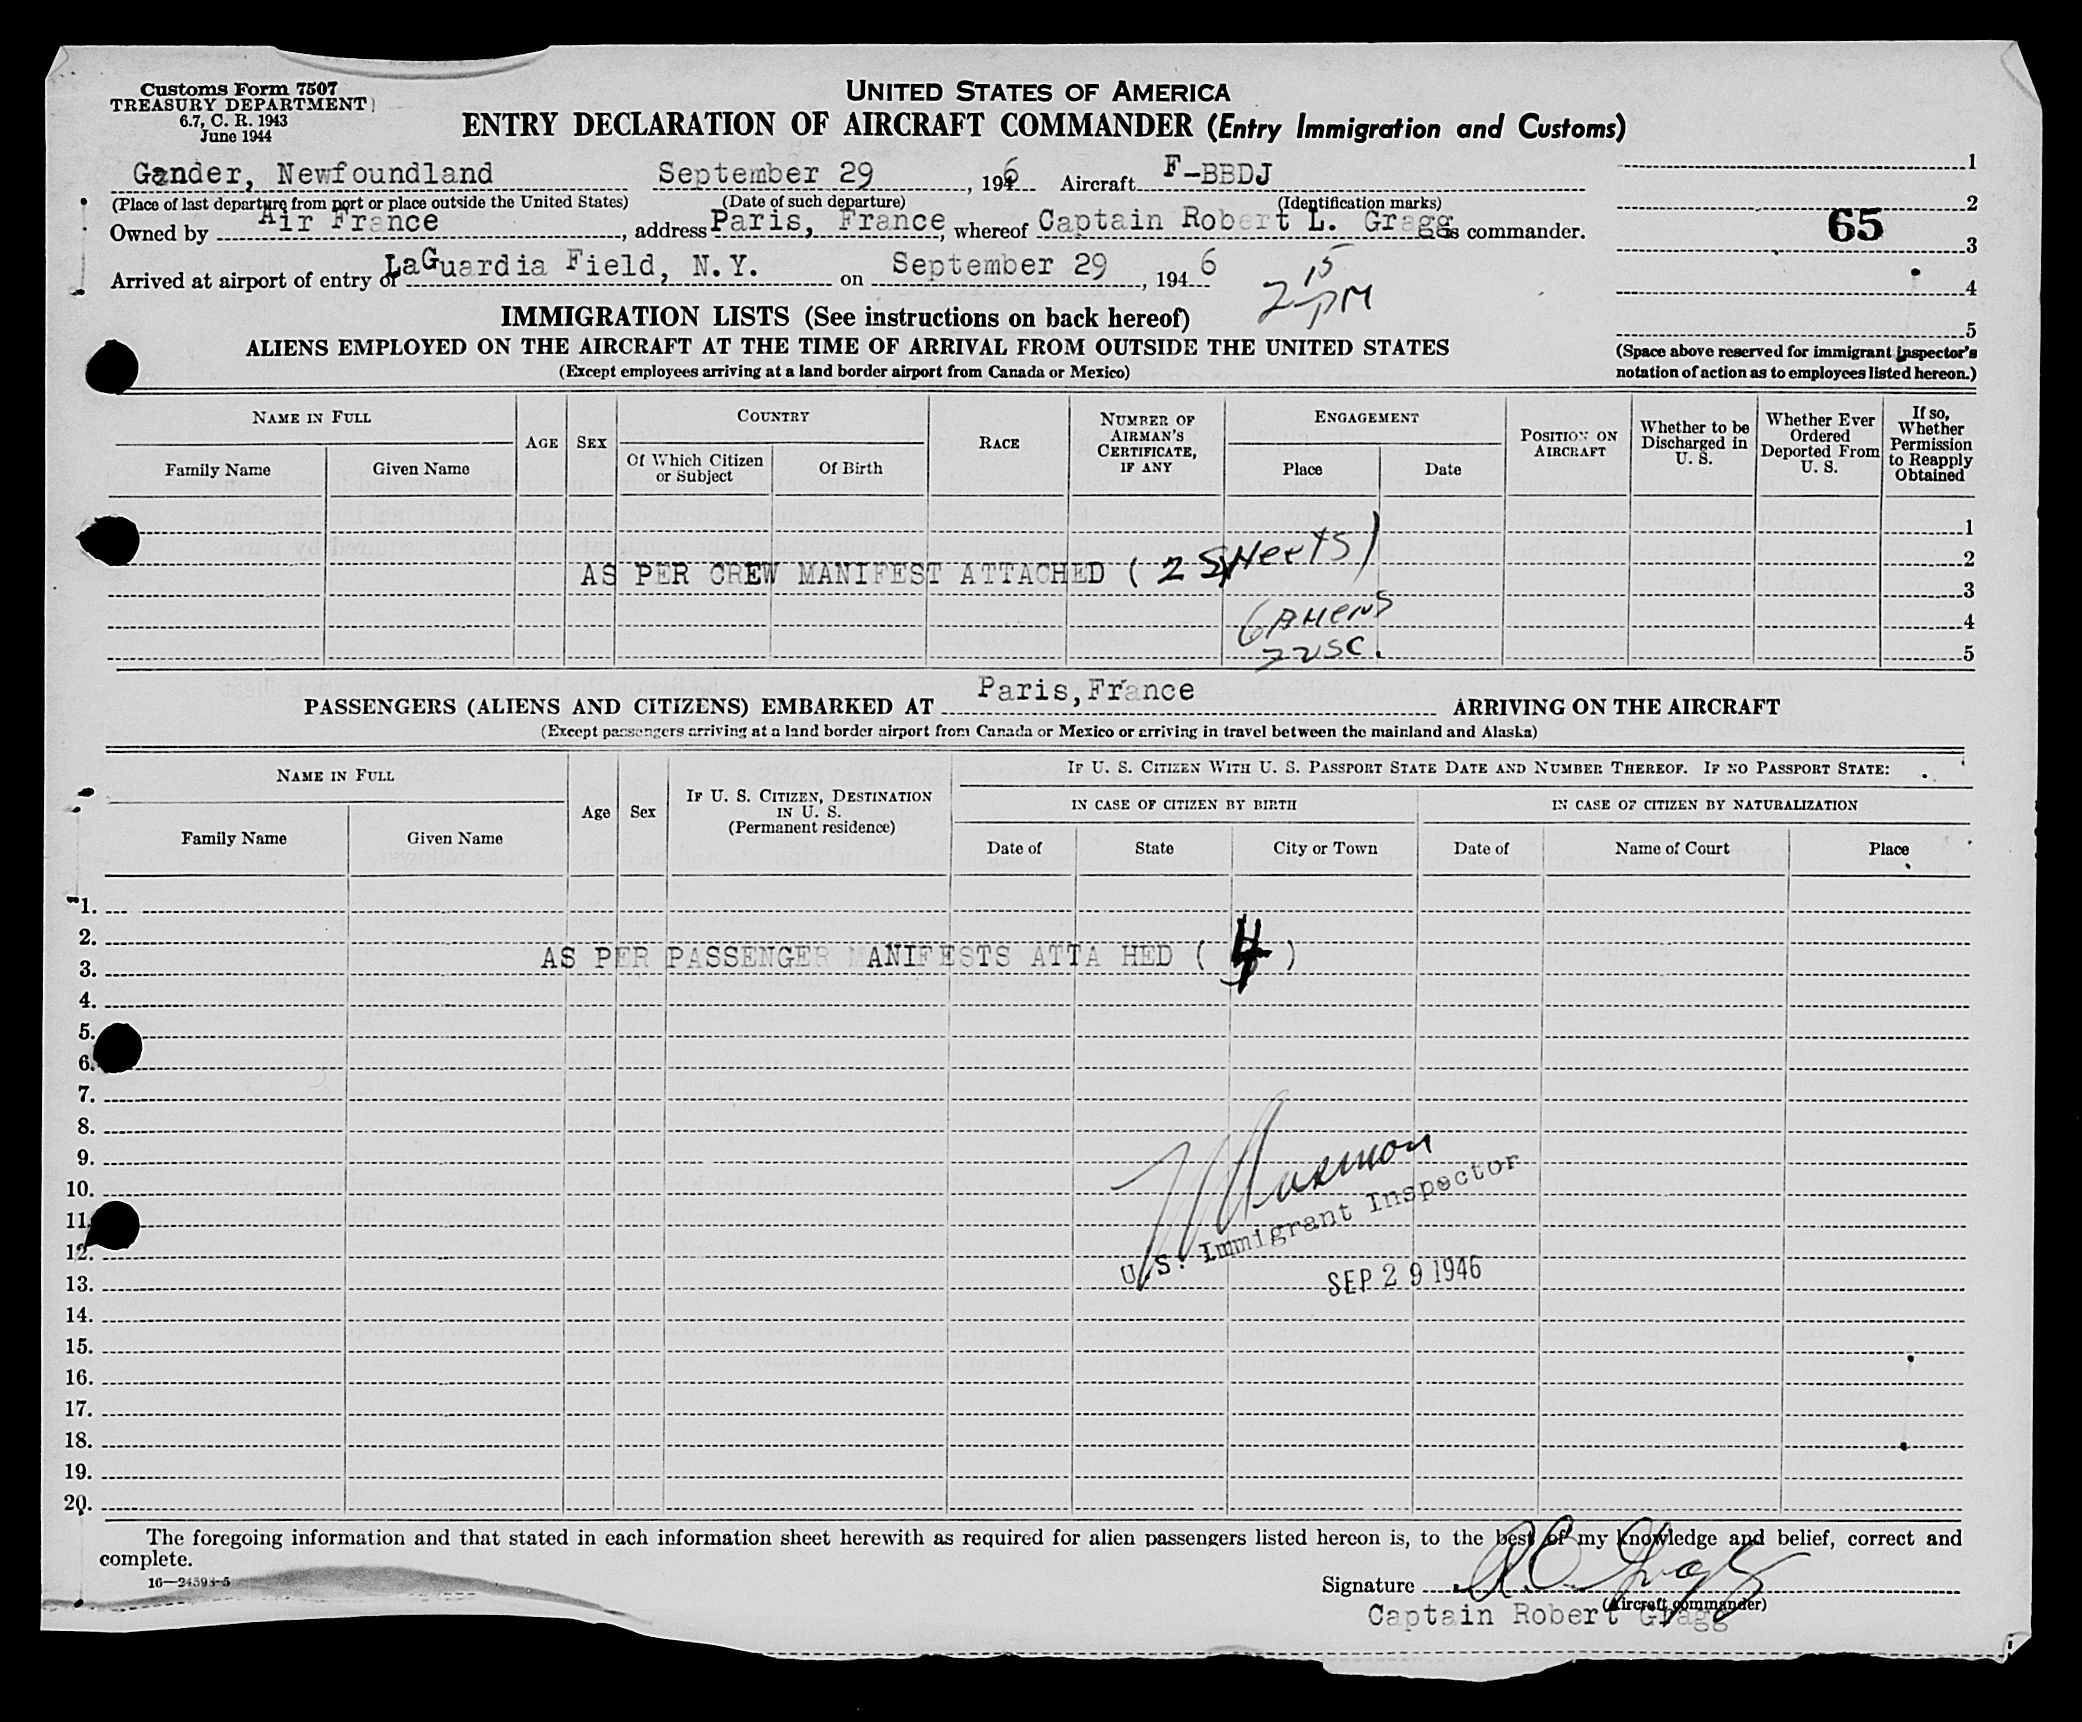 Customs Form 7507
TREASURY DEPARTMENT
6.7, C. R. 1943
June 1944
UNITED STATES OF AMERICA
ENTRY DECLARATION OF AIRCRAFT COMMANDER (Entry Immigration and Customs)
Gander, Newfoundland September 29, 1946 Aircraft F-BBDJ
(Place of last departure from port or place outside the United States) (Date of such departure) (Identification marks)
Owned by Air France, address Paris, France, whereof Captain Robert L. Gragg is commander.
Arrived at airport of entry of LaGuardia Field, N.Y. on September 29, 1946
2 15 PM
1
2
65
3
4
5
(Space above reserved for immigrant inspector's
notation of action as to employees listed hereon.)
IMMIGRATION LISTS (See instructions on back hereof)
ALIENS EMPLOYED ON THE AIRCRAFT AT THE TIME OF ARRIVAL FROM OUTSIDE THE UNITED STATES
(Except employees arriving at a land border airport from Canada or Mexico)
NAME IN FULL
Family Name
Given Name
AGE
SEX
COUNTRY
Of Which Citizen
or Subject
Of Birth
RACE
NUMBER OF
AIRMAN'S
CERTIFICATE,
IF ANY
ENGAGEMENT
Place
Date
POSITION ON
AIRCRAFT
Whether to be
Discharged in
U. S.
Whether Ever
Ordered
Deported From
U. S.
If so,
Whether
Permission
to Reapply
Obtained
1
2
AS PER CREW MANIFEST ATTACHED ( 2 SHeets)
3
6 ALIENS
4
USC.
5
PASSENGERS (ALIENS AND CITIZENS) EMBARKED AT Paris, France ARRIVING ON THE AIRCRAFT
(Except passengers arriving at a land border airport from Canada or Mexico or arriving in travel between the mainland and Alaska)
NAME IN FULL
Family Name
Given Name
Age
Sex
IF U. S. CITIZEN, DESTINATION
IN U. S.
(Permanent residence)
IF U. S. CITIZEN WITH U. S. PASSPORT STATE DATE AND NUMBER THEREOF. IF NO PASSPORT STATE:
IN CASE OF CITIZEN BY BIRTH
Date of
State
City or Town
IN CASE OF CITIZEN BY NATURALIZATION
Date of
Name of Court
Place
1.
2.
AS PER PASSENGER MANIFESTS ATTA HED ( 4 )
3.
4.
5.
6.
7.
8.
9.
10.
11.
12.
U.S. Immigrant Inspector
13.
SEP 29 1946
14.
15.
16.
17.
18.
19.
20.
The foregoing information and that stated in each information sheet herewith as required for alien passengers listed hereon is, to the best of my knowledge and belief, correct and
complete.
16—24593-5
Signature R L Gragg
(Aircraft commander)
Captain Robert Gragg